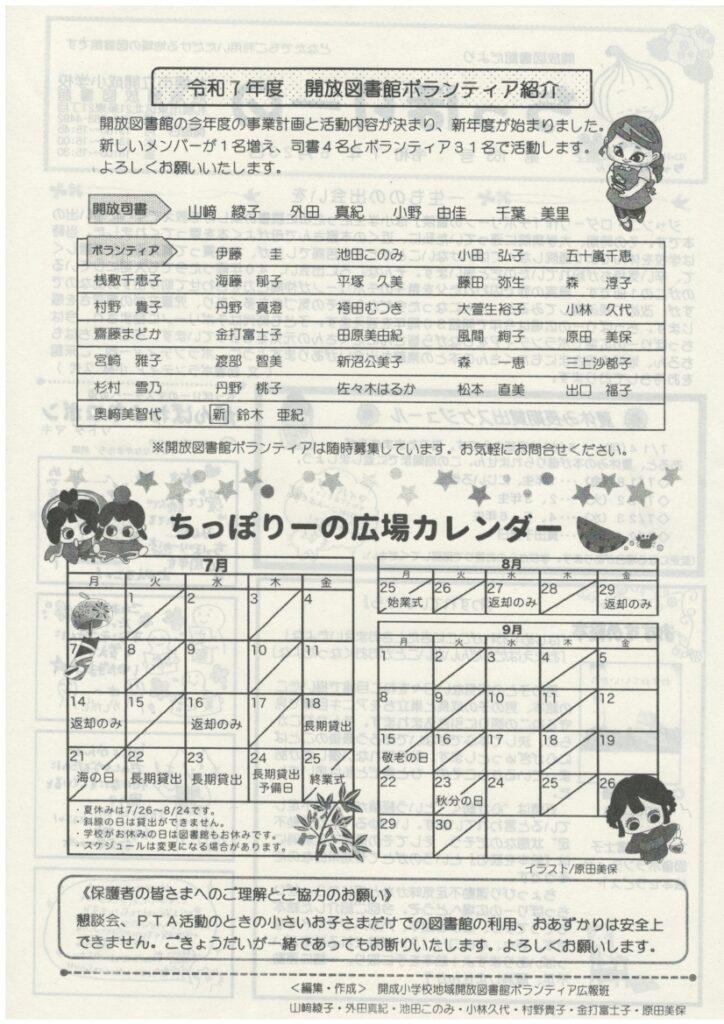 令和7年度　開放図書館ボランティア紹介
開放図書館の今年度の事業計画と活動内容が決まり、新年度が始まりました。
新しいメンバーが1名増え、司書4名とボランティア31名で活動します。
よろしくお願いいたします。
開放司書　山﨑　綾子　外田　真紀　小野　由佳　千葉　美里
ボランティア　伊藤　圭　池田このみ　小田　弘子　五十嵐千恵
桟敷千恵子　海藤　郁子　平塚　久美　藤田　弥生　森　淳子
村野　貴子　丹野　真澄　袴田むつき　大萱生裕子　小林　久代
齋藤まどか　金打富士子　田原美由紀　風間　絢子　原田　美保
宮崎　雅子　渡部　智美　新沼公美子　森　一恵　三上沙都子
杉村　雪乃　丹野　桃子　佐々木はるか　松本　直美　出口　福子
奥﨑美智代　新　鈴木　亜紀
※開放図書館ボランティアは随時募集しています。お気軽にお問合せください。
ちっぽりーの広場カレンダー
7月
月　火　水　木　金
1　2　3　4
7　8　9　10　11
14 返却のみ　15　16 返却のみ　17　18 長期貸出
21 海の日　22 長期貸出　23 長期貸出　24 長期貸出予備日　25 終業式
・夏休みは7/26～8/24です。
・斜線の日は貸出ができません。
・学校がお休みの日は図書館もお休みです。
・スケジュールは変更になる場合があります。
8月
月　火　水　木　金
25 始業式　26　27 返却のみ　28　29 返却のみ
9月
月　火　水　木　金
1　2　3　4　5
8　9　10　11　12
15 敬老の日　16　17　18　19
22　23 秋分の日　24　25　26
29　30
イラスト/原田美保
《保護者の皆さまへのご理解とご協力のお願い》
懇談会、PTA活動のときの小さいお子さまだけでの図書館の利用、おあずかりは安全上
できません。ごきょうだいが一緒であってもお断りいたします。よろしくお願いします。
＜編集・作成＞　開成小学校地域開放図書館ボランティア広報班
山﨑綾子・外田真紀・池田このみ・小林久代・村野貴子・金打富士子・原田美保